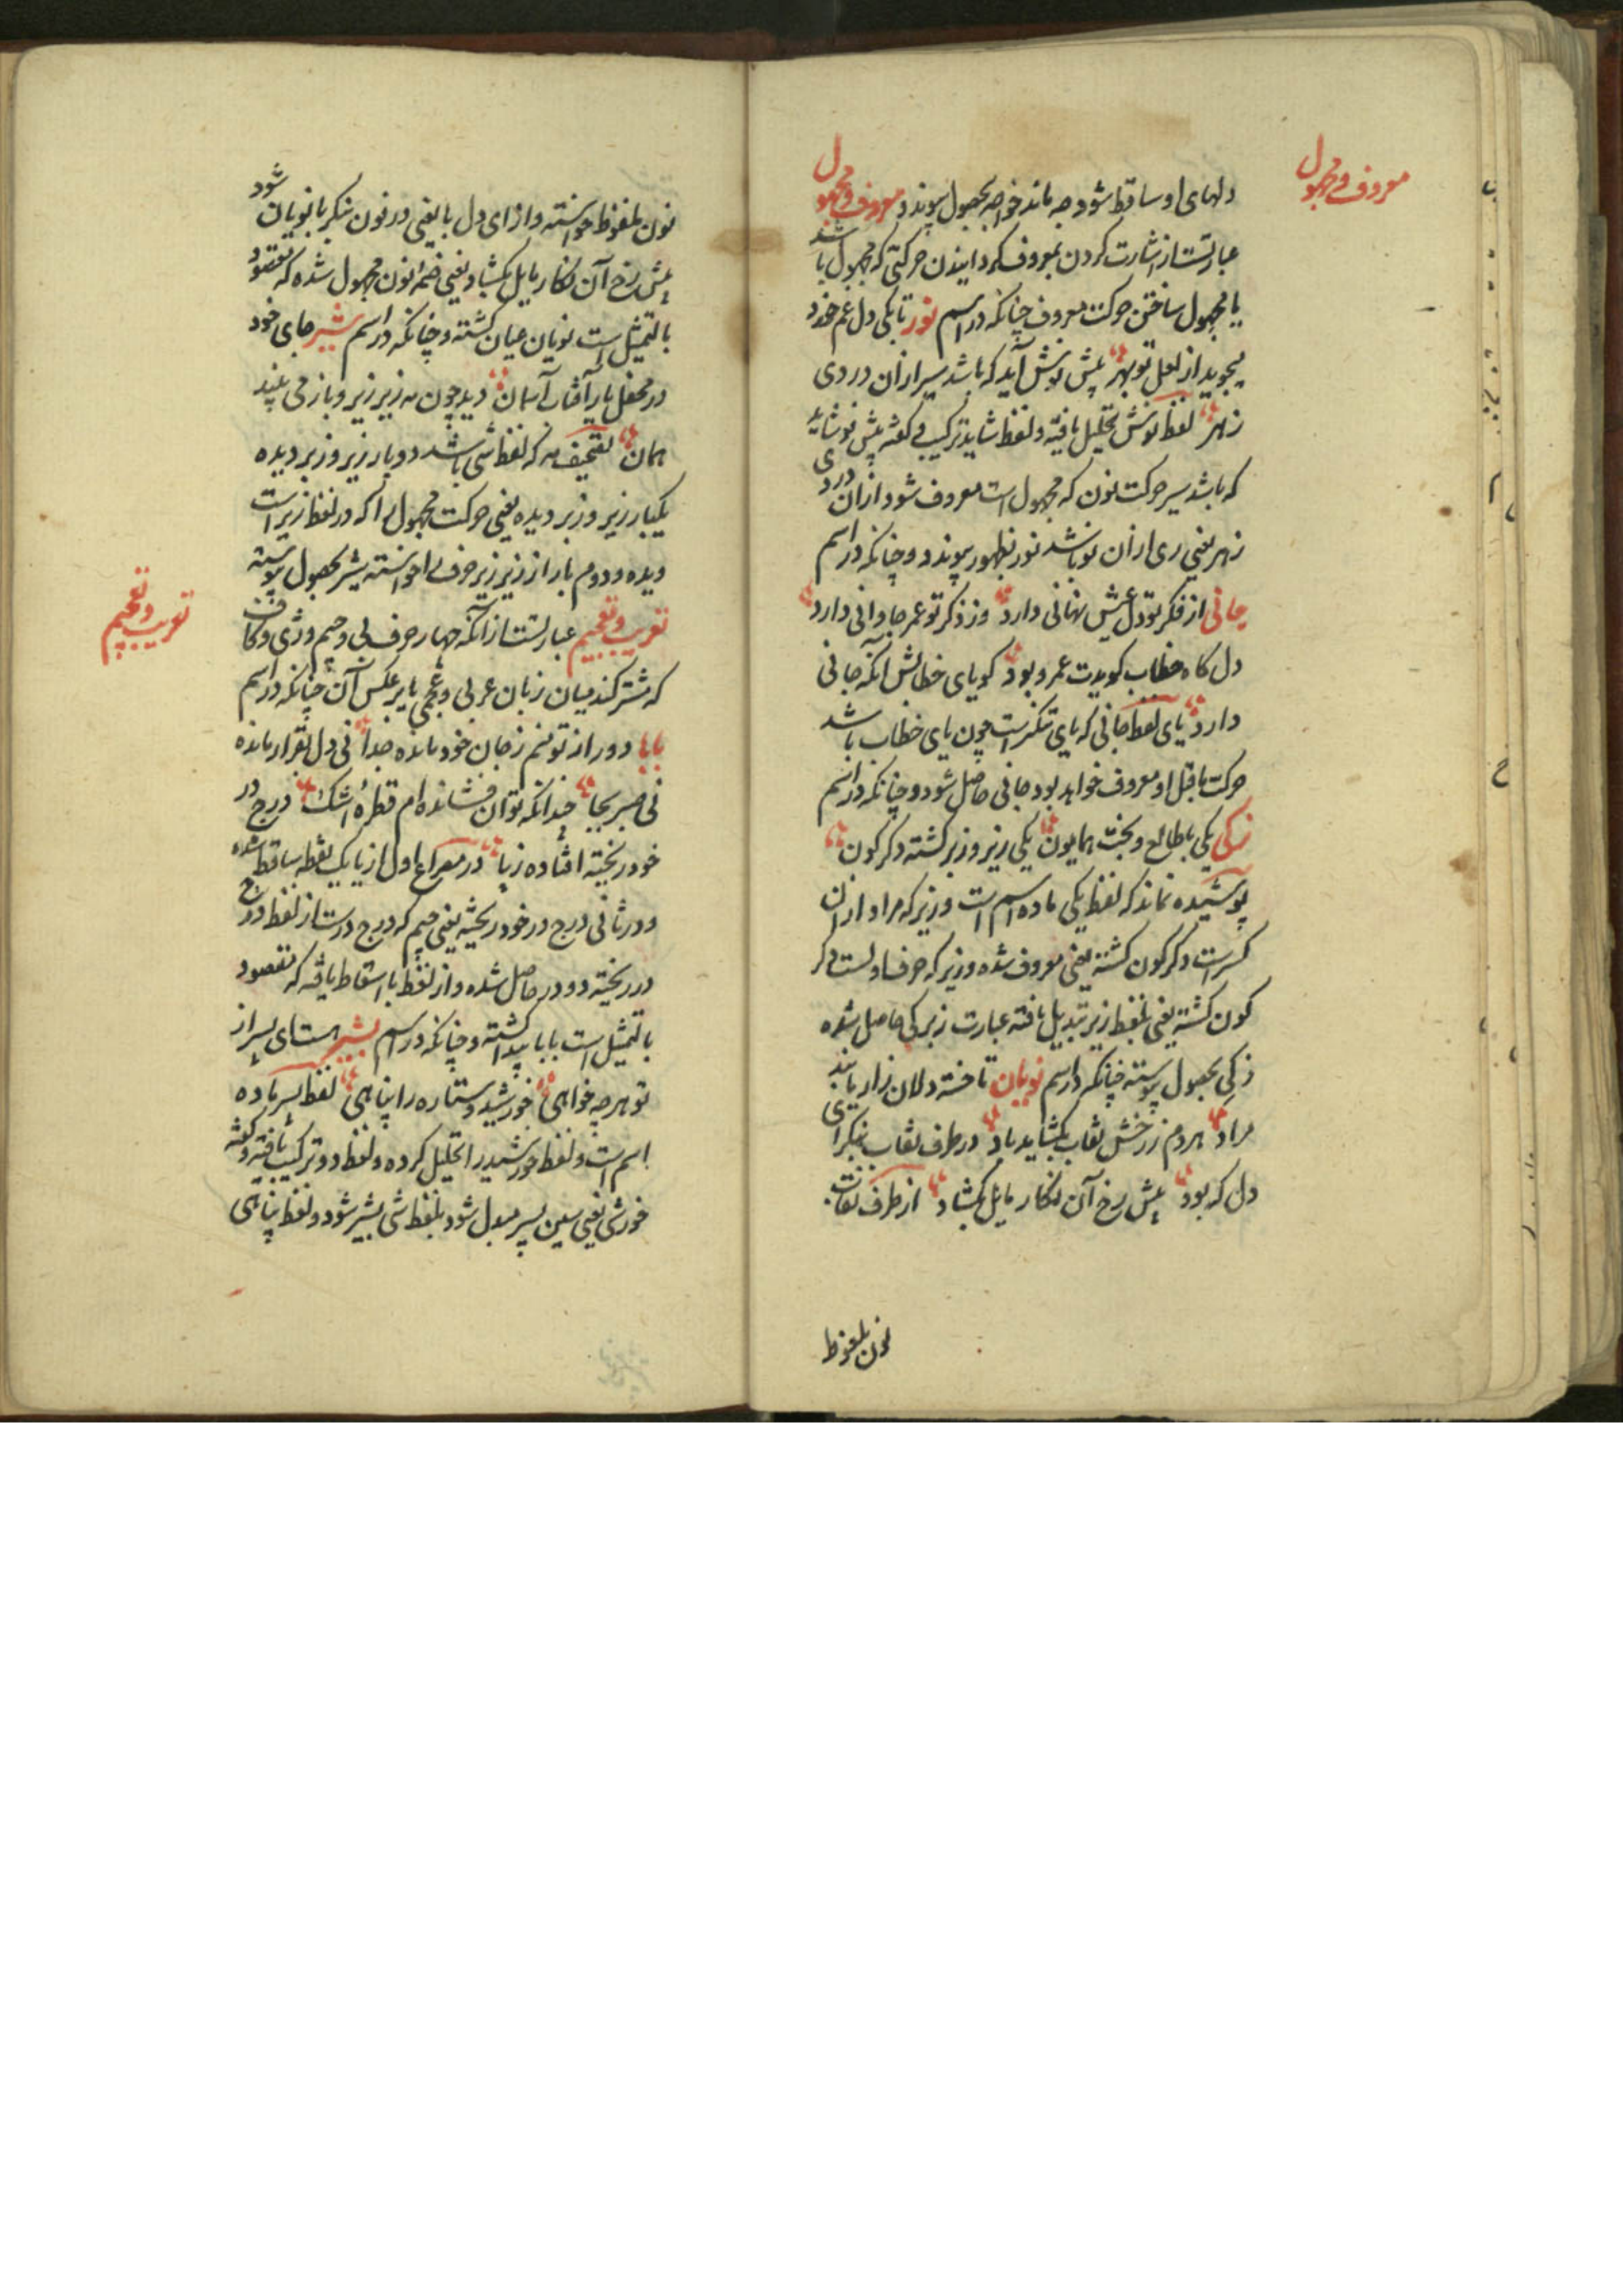 معروف و مجهول
دلهای او ساقط شود چه ماند خواجه بحصول پیوندد معروف و مجهول
عبارتست از اشارت کردن بمعروف گردانیدن حرکتی که مجهول باشد
یا مجهول ساختن حرکت معروف چنانکه در اسم نور تا بکی دل غم خورد
بجوید از لعل تو بهر پیش نوشش آید که باشد سیر ازان دردی
زهر لفظ نوشش تحلیل یافته و لفظ شاید ترکیب و گفته پیش نو شاید
که باشد سیر حرکت نون که مجهول است معروف شود ازان دردی
زهر یعنی ری ازان نو باشد نور بظهور پیوندد و چنانکه در اسم
جانی از فکر تو دل عیش نهانی دارد وز ذکر تو عمر جاودانی دارد
دل گاه خطاب گویدت عمر و بود گویای خطابش آنکه جانی
دارد یای لفظ جانی که یای تنکیر است چون یای خطاب باشد
حرکت ماقبل او معروف خواهد بود جانی حاصل شود و چنانکه در اسم
زکی یکی با طالع و بخت همایون یکی زیر و زبر گشته دگرگون
پوشیده نماند که لفظ یکی ماده اسم است و زیر که مراد ازان
کسر است دگرگون گشته یعنی معروف شده و زیر که حرف اولست دگر
گون گشته یعنی بلفظ زیر تبدیل یافته عبارت زیر کی حاصل شده
زکی بحصول پیوسته چنانکه در اسم نویان تا خسته دلان زار یابند
مراد هر دم ز رخش نقاب بگشاید باد در طرف نقاب بنگر ای
دل که بود پیش رخ آن نگار مایل بگشاد از طرف نقاب
نون بلفوظ
نون بلفوظ خواسته و از ای دل با یعنی در نون بنگر با نویان شود
پیش رخ آن نگار مایل بگشاد یعنی ضمه نون مجهول شده که مقصود
بالتمثیل است نویان عیان گشته و چنانکه در اسم شیر جای خود
در محفل یار آفتاب آسمان دید چون مه زیر زیر و باز می بیند
همان تصحیف مه که لفظ شی باشد دو بار زیر و زبر دیده
یکبار زیر و زبر دیده یعنی حرکت مجهول را که در لفظ زیر است
دیده و دوم بار از زیر زیر حرف را خواسته شیر بحصول پیوسته
تعریب و تعجیم
تعریب و تعجیم عبارتست از آنکه چهار حرف بی و جیم و زی و کاف
که مشترکند میان زبان عربی و عجمی یا برعکس آن چنانکه در اسم
بابا دور از تو منم ز جان خود مانده جدا نی دل بقرار مانده
نی صبر بجا چندانکه توان فشانده ام قطره اشک درج در
خود ریخته افتاده ز پا در مصراع اول از پا یک نقطه ساقط شده
و در ثانی درج در خود ریخته یعنی جیم که درج درست از لفظ درج
در ریخته دو در حاصل شده و از لفظ با اسقاط یافته که مقصود
بالتمثیل است بابا پیدا گشته و چنانکه در اسم بشیر هست ای پسر از
تو هر چه خواهی خورشید و ستاره را پناهی لفظ پسر ماده
اسم است و لفظ خورشید را تحلیل کرده و لفظ دو ترکیب یافته و گفته
خورشی یعنی سین پسر مبدل شود بلفظ شی بشیر شود و لفظ پناهی